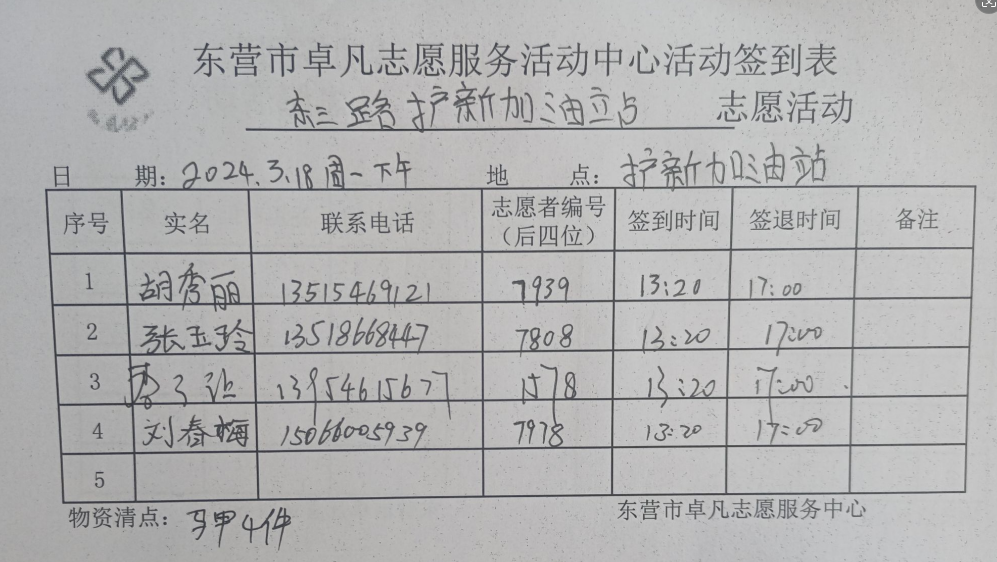 东营市卓凡志愿服务活动中心活动签到表
东三路护新加油立占 志愿活动
日 期：2024.3.18周一下午 地 点：护新加油站
序号 实名 联系电话 志愿者编号（后四位） 签到时间 签退时间 备注
1 胡秀丽 13515469121 7939 13:20 17:00
2 张玉玲 13518668447 7808 13:20 17:00
3 13954615677 1578 13:20 17:00
4 刘春梅 15066005939 7978 13:20 17:00
5
物资清点：马甲4件 东营市卓凡志愿服务中心